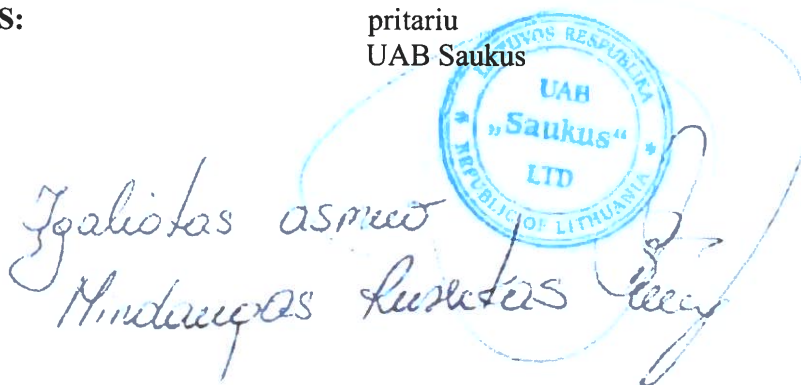 S:
pritariu
UAB Saukus
LIETUVOS RESPUBLIKA
UAB
„Saukus“
LTD
REPUBLIC OF LITHUANIA
Įgaliotas asmuo
Mindaugas